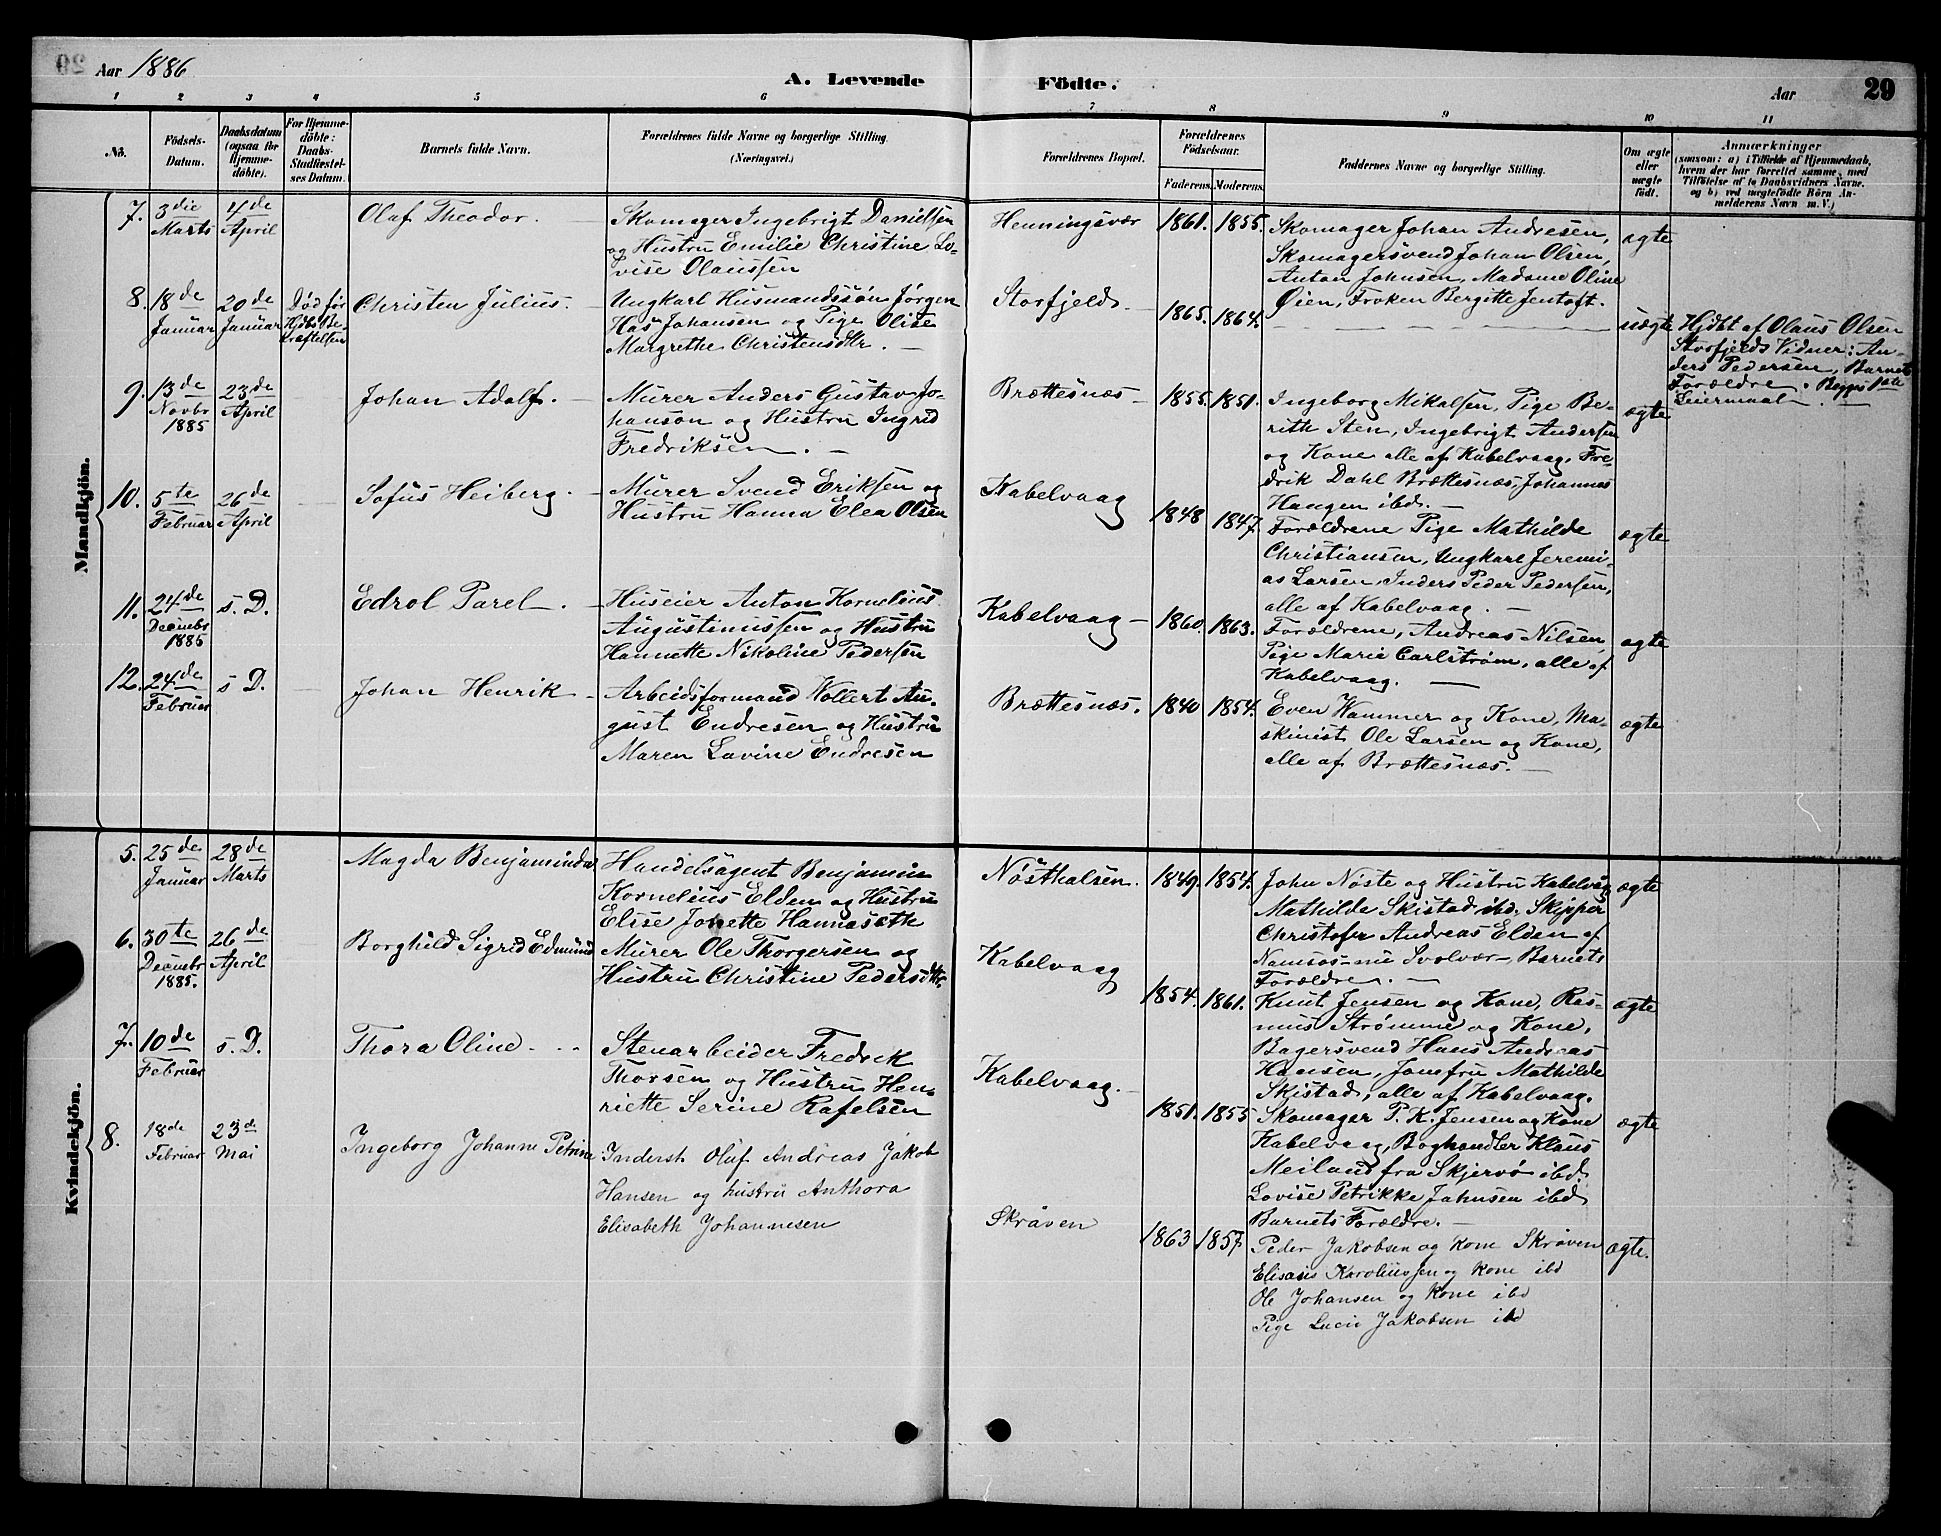 Aar 1886
A. Levende
Födte.
Aar
29
1 2 3 4 5 6
7 8 9 10 11
No.
Födsels-
Datum.
Daabsdatum
(ogsaa for
Hjemme-
döbte).
For Hjemme-
döbte:
Daabs-
Stadfæstel-
ses Datum.
Barnets fulde Navn.
Forældrenes fulde Navne og borgerlige Stilling.
(Næringsvei.)
Forældrenes Bopæl.
Forældrenes
Födselsaar.
Faderens. Moderens.
Faddernes Navne og borgerlige Stilling.
Om ægte
eller
uægte
født.
Anmærkninger
(saasom: a) i Tilfælde af Hjemmedaab,
hvem der har forrettet samme, med
Tilföielse af to Daabsvidners Navne,
og b) ved uægtefödte Börn An-
melderens Navn m. V.)
Mandkjön.
7. 3die
Marts
4de
April
Olaf Theodor.
Skomager Ingebrigt Danielsen
og Hustru Emilie Christine Lo-
vise Olaussen
Henningsvær
1861. 1855.
Skomager Johan Andresen,
Skomagersvend Johan Olsen,
Anton Johnsen, Madame Oline
Øien, Frøken Bergitte Jentoft.
ægte
8. 18de
Januar
20de
Januar
Død før
Hjdbs Be-
kræftelsen
Christen Julius.
Ungkarl Husmandssøn Jørgen
Hás Johansen og Pige Olise
Margrethe Christensdtr.
Storfjeld
1865. 1864.
uægte
Hjdbt af Olaus Olsen
Storfjelds Vidner: An-
ders Pedersen, Barnets
Forældre. Begges 1ste
Leiermaal.
9. 13de
Novbr
1885
23de
April
Johan Adolf.
Murer Anders Gustav Jo-
hanson og Hustru Ingrid
Fredriksen.
Brættesnæs
1855. 1851.
Ingeborg Mikalsen, Pige Be-
rith Sten, Ingebrigt Andersen
og Kone alle af Kabelvaag, Fre-
drik Dahl Brættesnæs, Johannes
Haugen ibd.
ægte
10. 5te
Februar
26de
April
Sofus Heiberg.
Murer Svend Eriksen og
Hustru Hanna Elea Olsen
Kabelvaag
1848 1847.
Forældrene Pige Mathilde
Christiansen, Ungkarl Jeremi-
as Larsen, Inders Peder Pedersen,
alle af Kabelvaag.
ægte
11. 24de
Decmbr
1885
s. D.
Edrol Parel.
Huseier Anton Kornelius
Augustinussen og Hustru
Hannette Nikoline Pedersen
Kabelvaag
1860. 1863.
Forældrene, Andreas Nilsen,
Pige Marie Carlstrøm, alle af
Kabelvaag.
ægte
12. 24de
Februar
s. D.
Johan Henrik
Arbeidsformand Vollert Au-
gust Endresen og Hustru
Maren Lavine Endresen
Brættesnæs.
1840 1854.
Even Hammer og Kone, Ma-
skinist Ole Larsen og Kone,
alle af Brættesnæs.
ægte
Kvindekjön.
5. 25de
Januar
28de
Marts
Magda Benjaminda
Handelsagent Benjamin
Kornelius Elden og Hustru
Elise Jonette Hannaseth
Nösthalsen.
1849. 1854.
John Nøste og Hustru Kabelvåg
Mathilde Skistad ibd. Skipper
Christofer Andreas Elden af
Namsos nu Svolvær, Barnets
Forældre.
ægte
6. 30te
Decmbr
1885.
26de
April
Borghild Sigrid Edmund
Murer Ole Thorgersen og
Hustru Christine Pedersdtr.
Kabelvaag
1854. 1861.
Knut Jensen og Kone, Ras-
mus Strømme og Kone,
Bagersvend Hans Andreas
Hansen, Jomfru Mathilde
Skistad, alle af Kabelvaag.
ægte
7. 10de
Februar
s. D.
Thora Oline
Stenarbeider Fredrik
Thorsen og Hustru Hen-
riette Serine Rafelsen
Kabelvaag.
1851. 1855
Skomager P. K. Jensen og Kone
Kabelvaag, Boghandler Klaus
Meiland fra Skjervö ibd.
Lovise Petrikke Jahnsen ibd
Barnets Forældre.
ægte
8. 18de
Februar
23de
Mai
Ingeborg Johanne Petrine
Inderst. Oluf Andreas Jakob
Hansen og hustru Anthora
Elisabeth Johannesen
Skråven
1863 1857
Peder Jakobsen og Kone Skråven
Elisæus Karoliussen og Kone ibd
Ole Johansen og Kone ibd
Pige Lucie Jakobsen ibd
ægte.